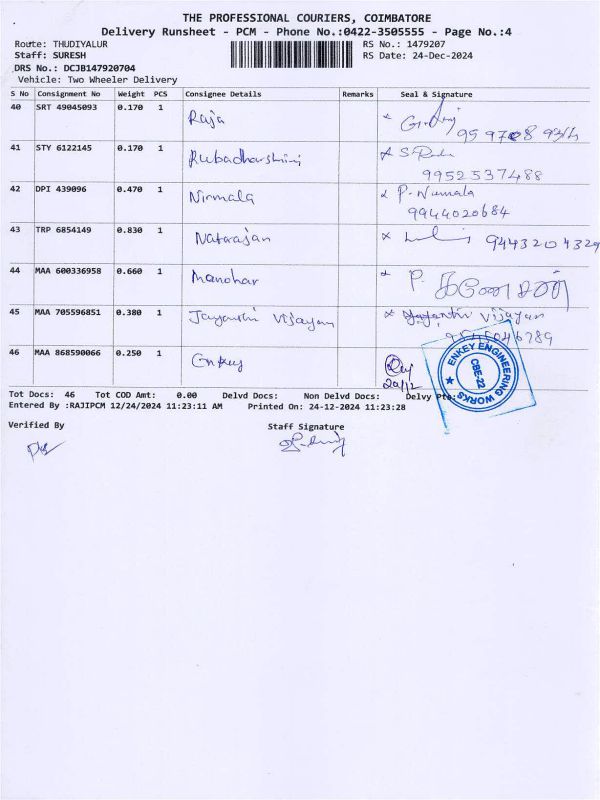 THE PROFESSIONAL COURIERS, COIMBATORE
Delivery Runsheet - PCM - Phone No.:0422-3505555 - Page No.:4
Route: THUDIYALUR RS No.: 1479207
Staff: SURESH RS Date: 24-Dec-2024
DRS No.: DCJB147920704
Vehicle: Two Wheeler Delivery
S No Consignment No Weight PCS Consignee Details Remarks Seal & Signature
40 SRT 49045093 0.170 1 Raja
41 STY 6122145 0.170 1 Rubadharshini
9952537488
42 DPI 439096 0.470 1 Nirmala P. Nirmala
9944020684
43 TRP 6854149 0.830 1 Natarajan 9443204329
44 MAA 600336958 0.660 1 Manohar P.
45 MAA 705596851 0.380 1 Jayanthi Vijayan Jayanthi Vijayan
46 MAA 868590066 0.250 1 Enkey
20/12
ENKEY ENGINEERING WORKS
CBE-22
Tot Docs: 46 Tot COD Amt: 0.00 Delvd Docs: Non Delvd Docs: Delvy
Entered By :RAJIPCM 12/24/2024 11:23:11 AM Printed On: 24-12-2024 11:23:28
Verified By Staff Signature